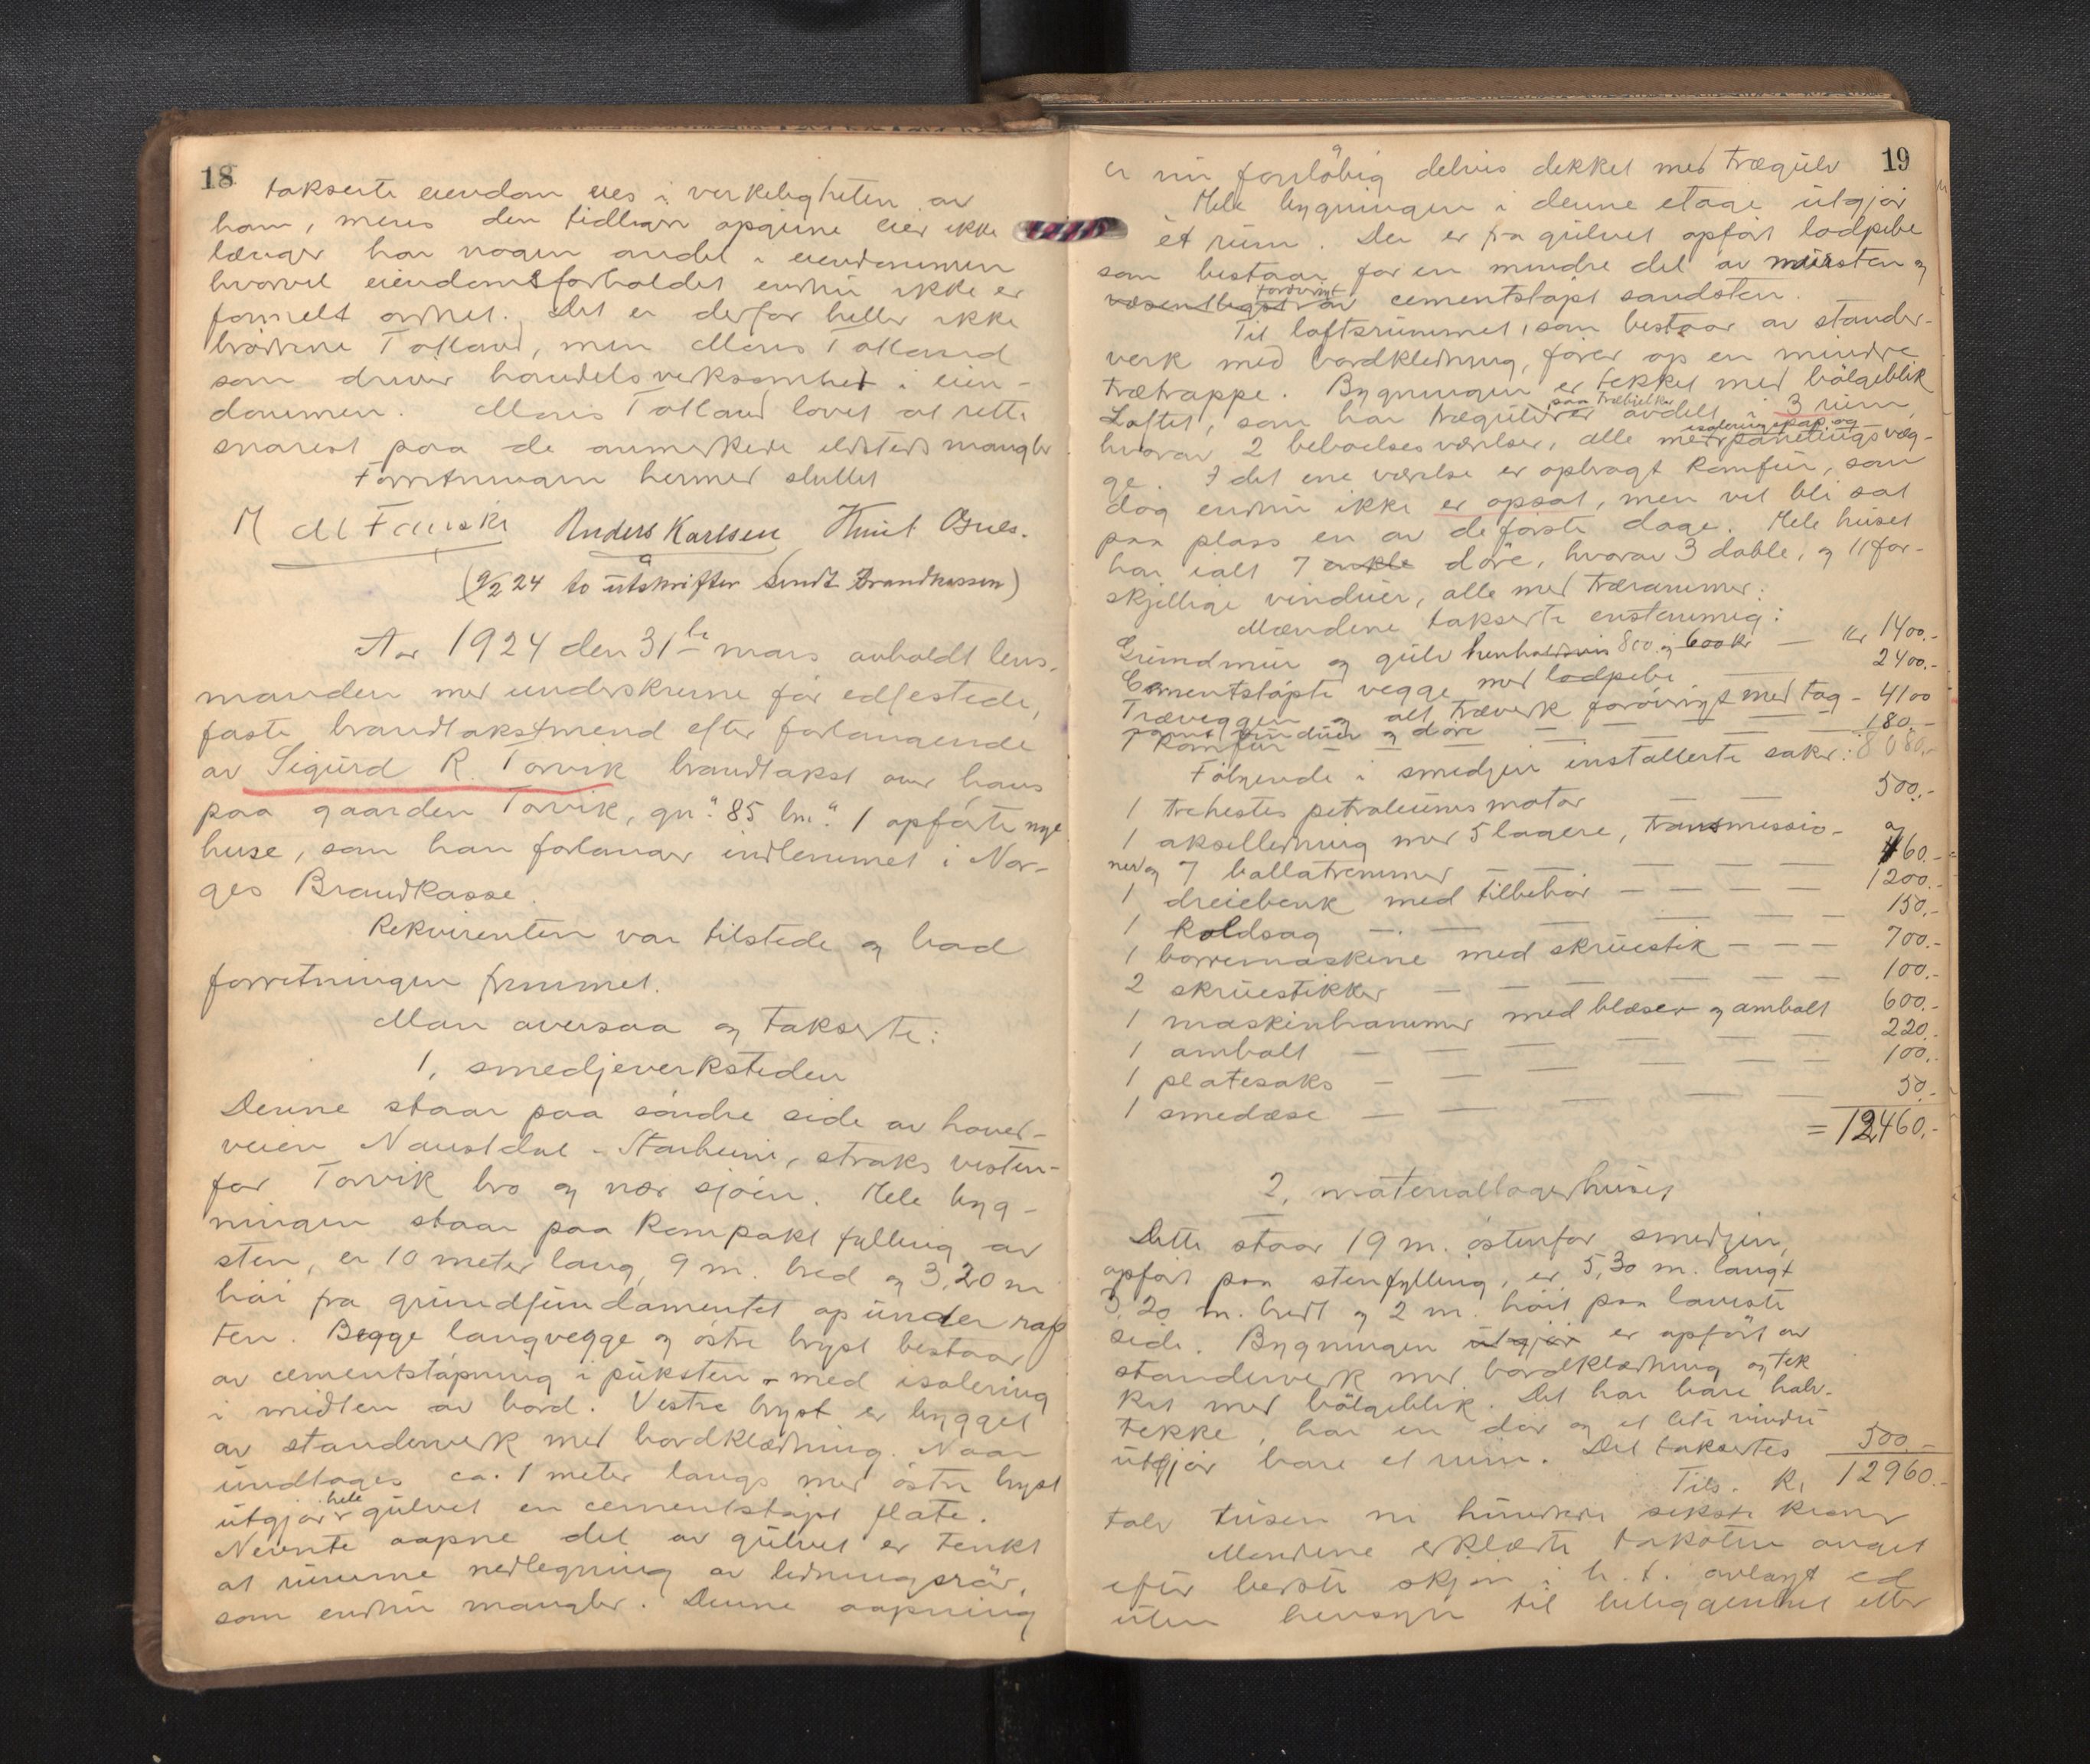 18
takserte eiendom eies i verkeligheten av
ham, mens den tidligere opgivne eier ikke
længer har nogen andel i eiendommen
hvorvel eiendomsforholdet endnu ikke er
formelt ordnet. Det er derfor heller ikke
brödrene Totland, men Mons Totland
som driver handelsverksomhet i eien-
dommen. Mons Totland lovet at rette
snarest paa de anmerkede ildstedsmangler
Forretningen hermed sluttet
Anders Karlsen Knut
(9/2 24 to utskrifter sendt Brandkassen)
Aar 1924 den 31te mars avholdt lens-
manden med underskrevne før edfestede,
faste brandtakstmend efter forlangende
av Sigurd R. Torvik brandtakst over hans
paa gaarden Torvik, gn. 85 bn. 1 opförte nye
huse, som han forlanger indlemmet i Nor-
ges Brandkasse.
Rekvirenten var tilstede og bad
forretningen fremmet.
Man overssaa og takserte:
1. smedjeverksteden
Denne staar paa söndre side av hoved-
veien Naustdal - Starheim, straks vesten-
for Torvik bro og nær sjöen. Hele byg-
ningen staar paa kompakt fylling av
sten, er 10 meter lang, 9 m. bred og 3,20 m
høi fra grundfundamentet op under raf
ten. Begge langvegge og östre bryst bestaar
av cementstöpning i puksten - med isolering
i midten av bord. Vestre bryst er bygget
av standerverk med bordklædning. Naar
undtages ca. 1 meter langs med östre bryst
utgjör hele gulvet en cementstöpt flate.
Nevnte aapne del av gulvet er tenkt
at rumme nedlegning av ledningsrör,
som endnu mangler. Denne aapning
19
er nu foreløbig delvis dekket med trægulv
Hele bygningen i denne etage utgjör
et rum. Der er fra gulvet opfört lodpibe
som bestaar for en mindre del av mursten og
væsentligst av forövrigt cementstöpt sandsten.
Til loftsrummet, som bestaar av stander-
verk med bordkledning, förer op en mindre
trætrappe. Bygningen er tekket med bölgeblik
Loftet, som har trægulv paa træbjelker er avdelt i 3 rum,
hvorav 2 beboelsesværelser, alle med isoleringspap og panelingsvæg-
ge. I det ene værelse er opbragt komfur, som
dog endnu ikke er opsat, men vil bli sat
paa plass en av de förste dage. Hele huset
har ialt 7 enkle döre, hvorav 3 doble, og 11 for-
skjellige vinduer, alle med trærammer.
Mændene takserte enstemmig:
Grundmur og gulv henholdsvis 800 og 600 kr — Kr 1400.-
Cementstöpte vegge med lodpibe — 2400.-
Trævegger og alt træverk forövrigt med tag - 4100
samt vinduer og döre
1 komfur — — — — 180.-
Fölgende i smedjen installerte saker: 8080.-
1 trehestes petroleumsmotor — — 500.-
1 akselledning med 5 lagere, transmissio-
ner og 7 ballatremmer — — — — 760.-
1 dreiebenk med tilbehör — — — — 1200.-
1 koldsag — — — — — 150.-
1 borremaskine med skruestik — — — 700.-
2 skruestikker — — — — — 100.-
1 maskinhammer med blæser og ambolt 600.-
1 ambolt — — — — — — 220.-
1 platesaks — — — — — — 100.-
1 smedæse — — — — — — 50.-
= 12460.-
2. materiallagerhuset
Dette staar 19 m. östenfor smedjen,
opfört paa stenfylling, er 5,30 m. langt
3,20 m. bredt og 2 m. höit paa laveste
side. Bygningen utgjör er opfört av
standerverk med bordklædning og tek
ket med bölgeblik. Det har bare halv-
tekke, har en dör og et lite vindu
utgjör bare et rum. Det taksertes 500.-
Tils. Kr 12960.-
tolv tusen ni hundrede seksti kroner
Mendene erklærte taksten avgit
efter bedste skjön i h. t. avlagt ed
uten hensyn til beliggenhet eller